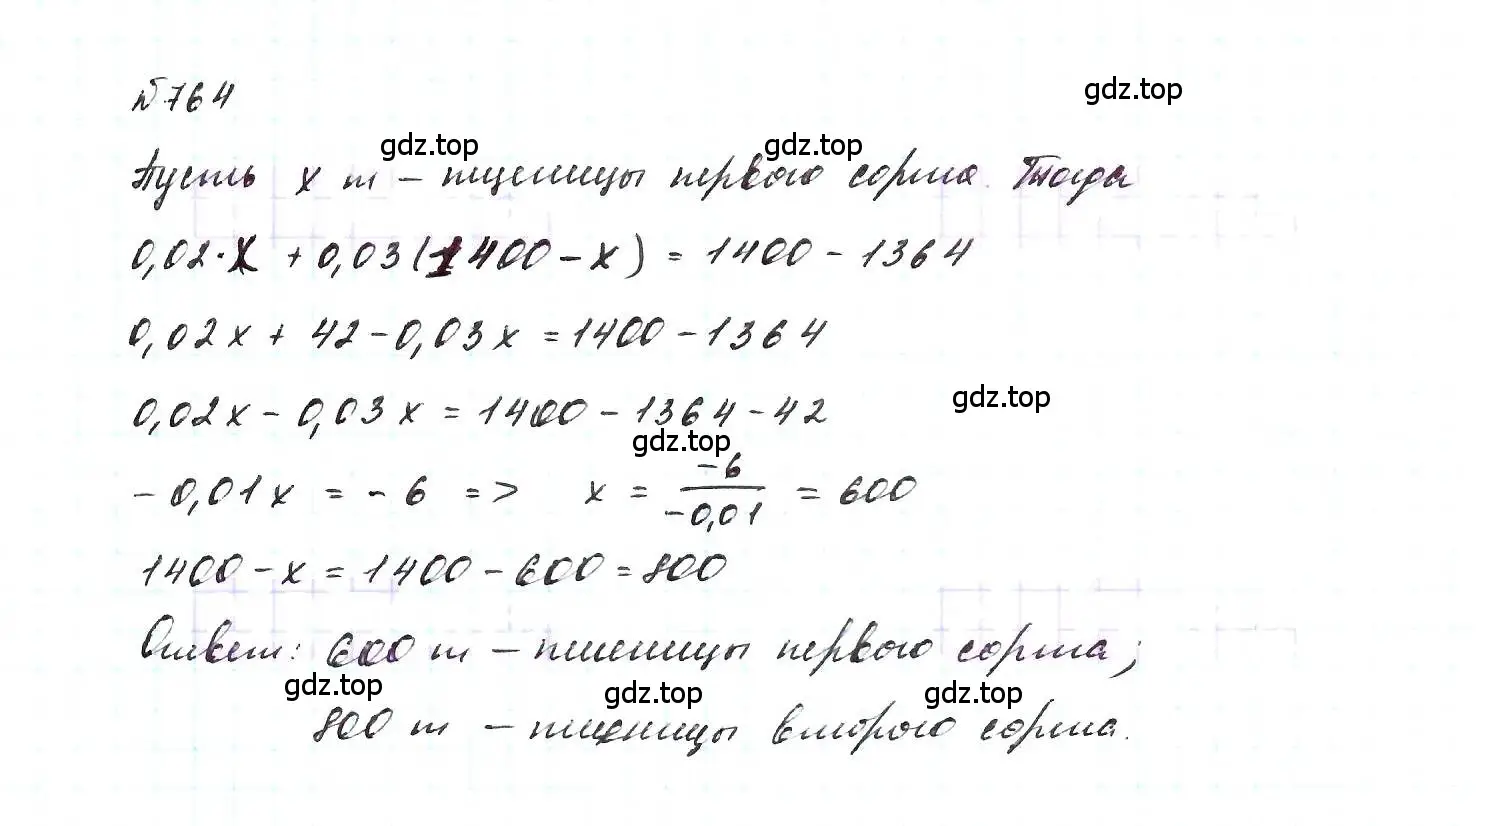 № 764
gdz.top
gdz.top
gdz.top
Пусть x т – пшеницы первого сорта. Тогда
0,02·x + 0,03(1400 – x) = 1400 – 1364
0,02x + 42 – 0,03x = 1400 – 1364
gdz.top
0,02x – 0,03x = 1400 – 1364 – 42
gdz.top
–0,01x = –6 => x = –6/–0,01 = 600
1400 – x = 1400 – 600 = 800
Ответ: 600 т – пшеницы первого сорта;
gdz.top
gdz.top
gdz.top
800 т – пшеницы второго сорта.